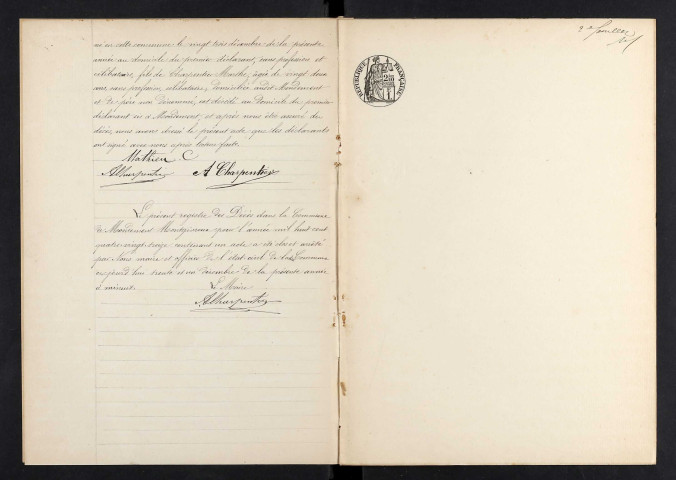 né en cette commune le vingt trois décembre de la présente
année au domicile du premier déclarant, sans profession et
célibataire, fils de Charpentier Marthe, âgée de vingt deux
ans, sans profession, célibataire, domiciliée audit Mondement
et de père non dénommé, est décédé au domicile du premier
déclarant sis à Mondement, et après nous être assuré du
décès, nous avons dressé le présent acte que les déclarants
ont signé avec nous après lecture faite.
Mathieu C
ACharpentier A Charpentier
Le présent registre des Décès dans la Commune
de Mondement Montgivroux pour l'année mil huit cent
quatre-vingt-treize contenant un acte a été clos et arrêté
par Nous maire et officier de l'état civil de la Commune
cejourd'hui trente et un décembre de la présente année
à minuit.
Le Maire
ACharpentier
2e feuillet
RÉPUBLIQUE FRANÇAISE